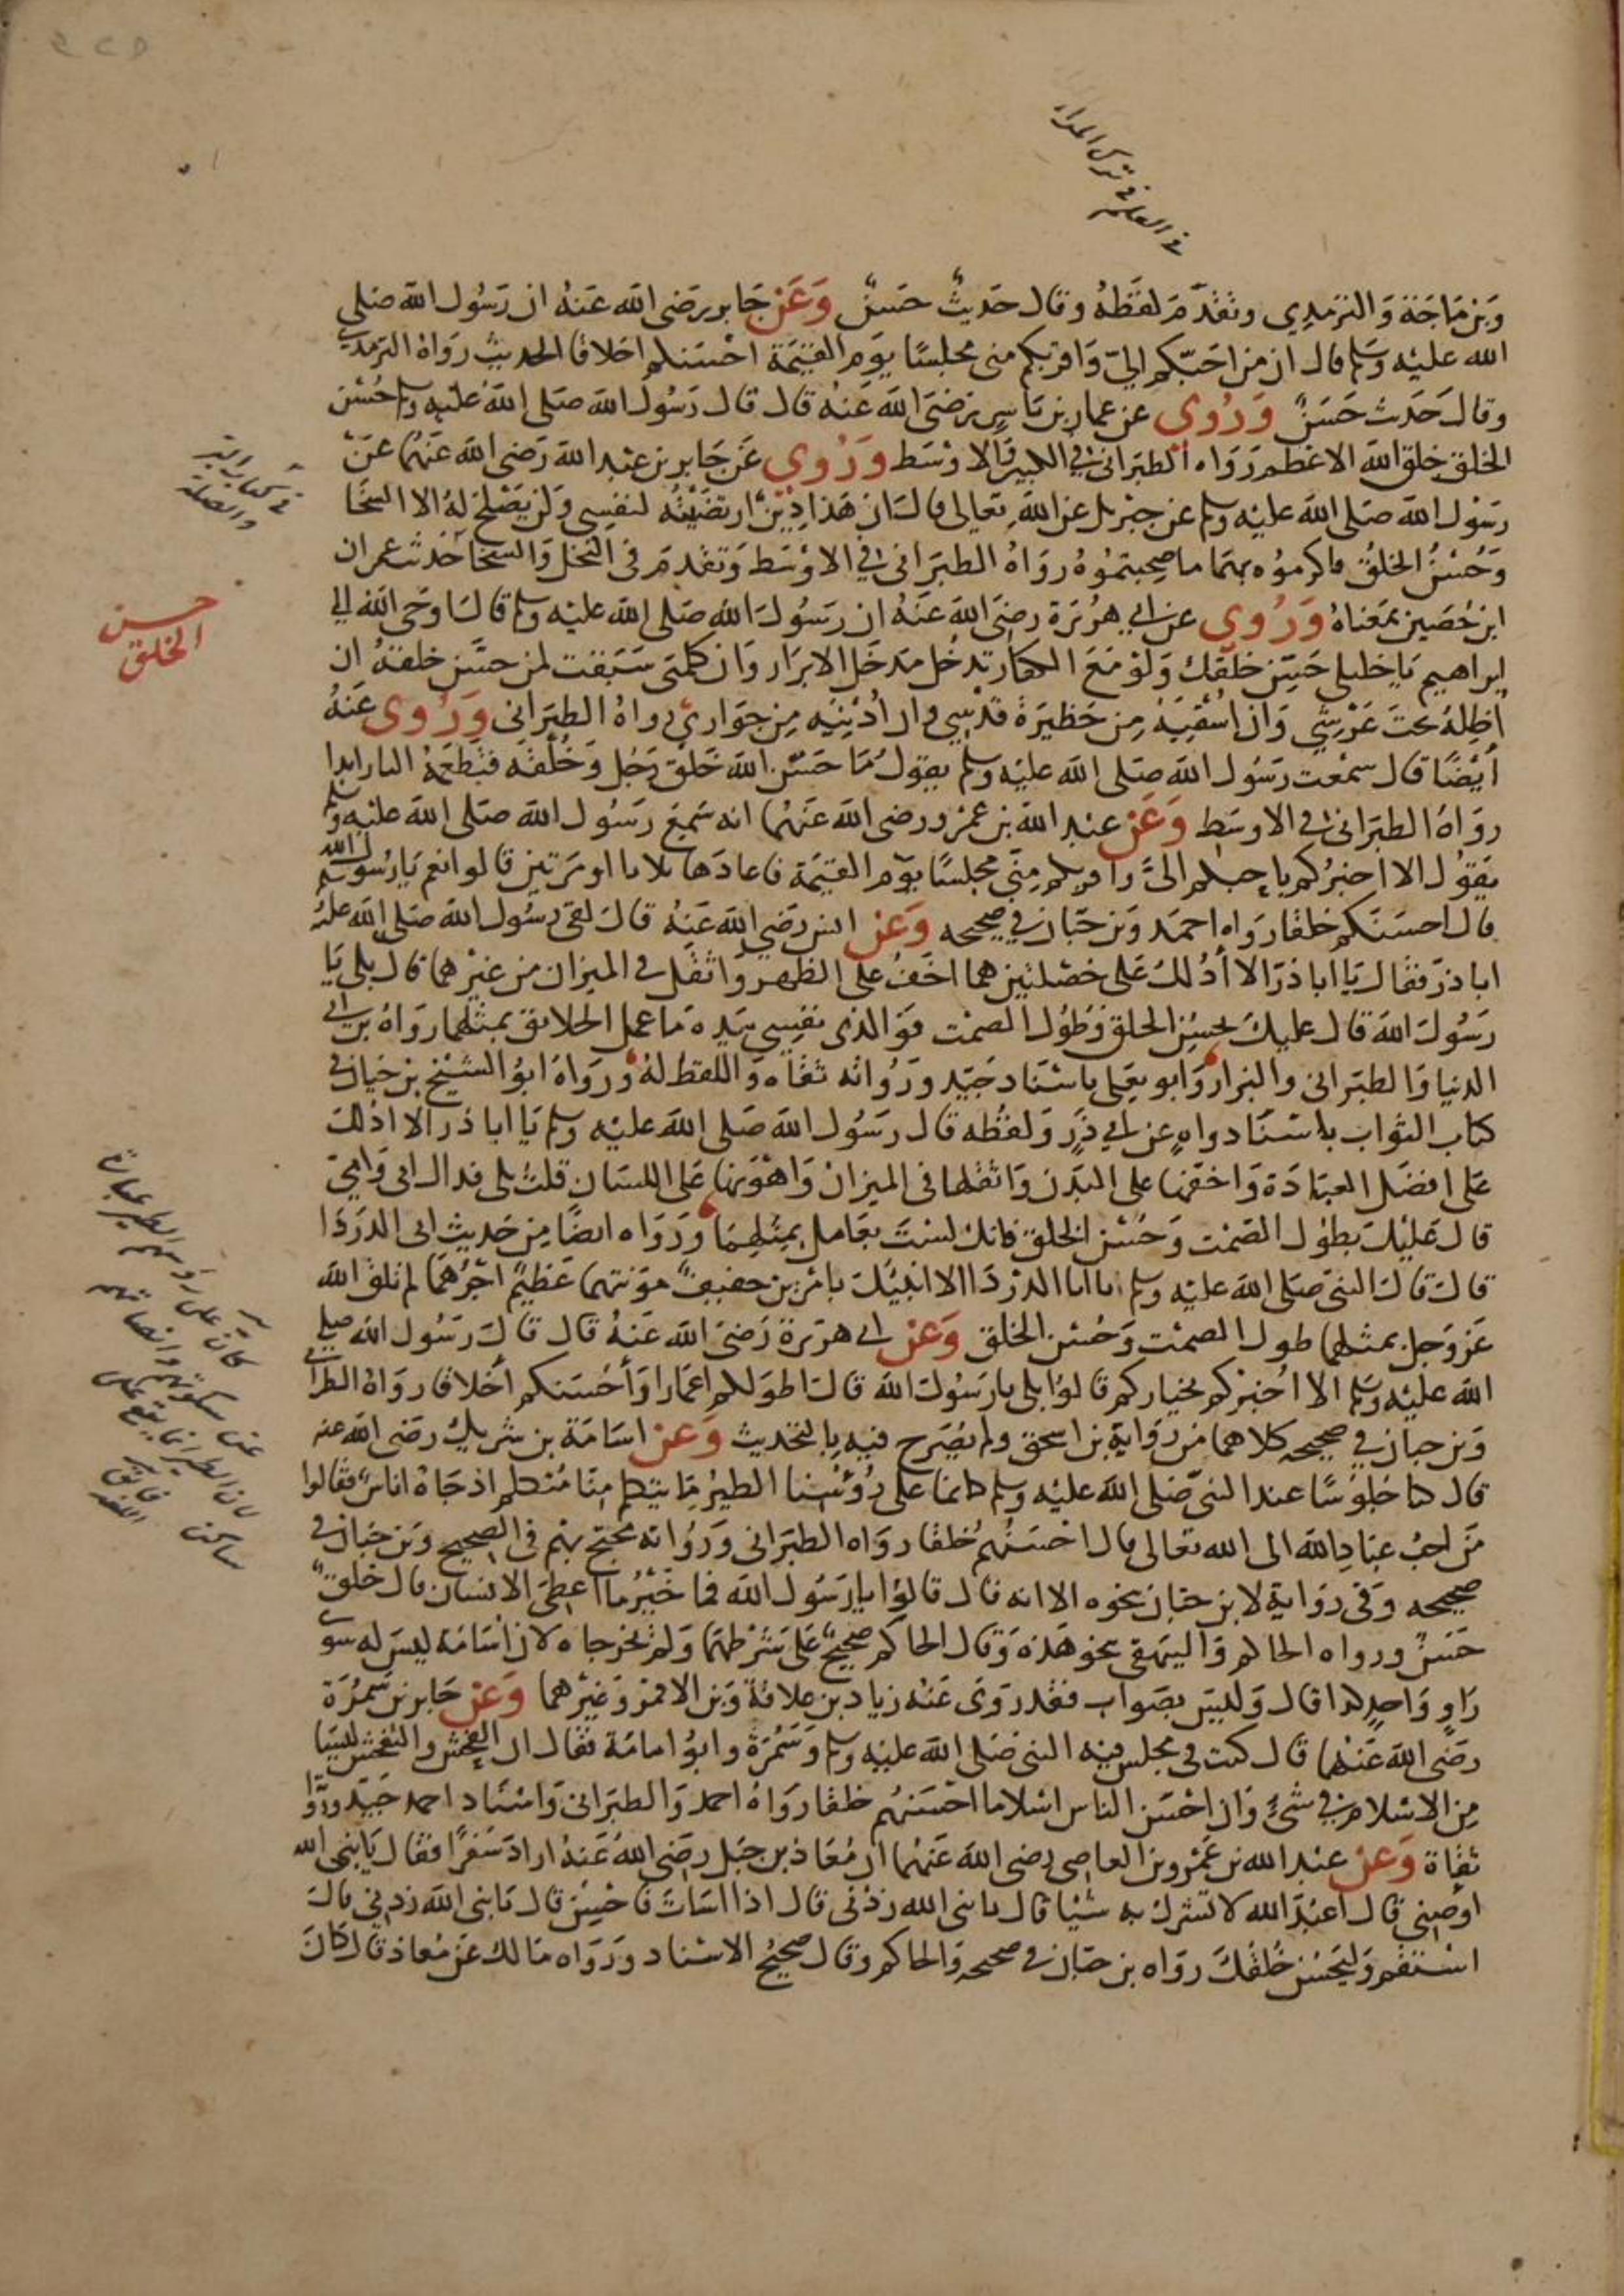 في العلم في ترك المراء
وَبن مَاجَة وَالترمذِي وتقَدّم لفظهُ وقال حَديثٌ حَسَنٌ وَعَن جَابر رَضى الله عَنهُ ان رَسُول الله صَلى
الله عليْه وَسَلم قال ان من احَبّكم اليّ وَاقربكم منى مجلسًا يوَم القيٰمَة احْسَنكم اخلاقا الحديث رَوَاهُ الترمذي
وقال حَدث حَسَنٌ وَرُوى عن عمار بن يَاسِر رَضىَ الله عَنهُ قال قال رَسُول الله صَلى الله عَليْه وسلم حُسْن
الخلق خلق الله الاعْظم رَوَاه الطبَرانى في الكبير وَالاوْسَط وَرُوي عَن جَابر بن عبْد الله رَضى الله عَنهُما عَن
رسَوُل الله صَلى الله عليْه وسلم عن جبْريل عن الله تعَالى قال ان هَذا دِيْنٌ ارتضَيْتُه لنفسِي وَلن يَصْلح لهُ الا السّخا
وَحُسْنُ الخلقُ فاكرموُه بهمَا ما صَحِبتمُوْهُ رَوَاهُ الطبَرانى في الاوْسَط وَتقدم فى البخل وَالسخا حَدث عمران
ابن حُصَين بمَعْناهُ وَرُوي عن ابي هرُيْرَة رضىَ الله عَنهُ ان رسَوُل الله صَلى الله عليْه وسلم قال اوحَى الله الي
ابراهيم يَا خليلى حَسّن خلقك وَلوْ مَعَ الكفار تدخل مَدخَل الابرَار وَان كلمتى سَبَقت لمن حسَّن خلقهُ ان
أظِلهُ تحتَ عَرْشِي وَان اسْقيَهُ مِن حَظيَرةَ قدْسِي وان أدْنِيَه مِن جَوَاري رواهُ الطبَرانى وَرُوى عَنهُ
أيْضًا قال سمْعت رَسُول الله صَلى الله عليْه وسلم يقول مَا حَسّن الله خَلق رَجُل وَخُلقه فتطعَمهُ النار ابدا
روَاهُ الطبَرانى في الاوسَط وَعَن عبْد الله بن عَمْرو رضى الله عَنهُما انه سَمِعَ رَسُول الله صَلى الله عليْه وسلم
يقوُل الا اخبرُكم باحبكم الىَّ واقربكم مِنّي مجلسًا يوَم القيٰمَة فاعادَها ثلاثا او مَرتين قالوا نعم يَا رسُول الله
قال احسَنكم خلقا رَوَاه احمَد وَبن حبّان في صحيحه وَعَن انس رَضي الله عَنهُ قال لقى رسُول الله صَلى الله عليْه وسلم
ابا ذرّ فقال يَا ابا ذرّ الا أدُلك عَلى خصْلتيْن هما اخَفُ على الظهْر وَاثقل في الميزان من غيْرهما قال بلى يَا
رَسُول الله قال عليك بحسُن الخلق وَطوُل الصمْت فوَالذى نفسِي بيَدِه مَا عمل الخلائق بمثلهما رَوَاهُ بن ابي
الدنيا وَالطبَرانى والبزار وَابو يعَلى باسْنَاد جَيّد ورُوَاته ثقاه وَاللفظ لهُ وَرَوَاهُ ابوُ الشيْخ بن حَيان في
كتاب الثواب باسْنَاد واهٍ عن ابي ذرّ وَلفظه قال رسَوُل الله صَلى الله عليْه وسلم يَا ابا ذر الا ادلك
عَلى افضَل العبَادَة وَاخفّها على البَدن وَاثقلها فى الميزان وَاهْوَنها عَلى اللسَان قلت بلى فداك ابى وَامّي
قال عَليْك بطوُل الصَمْت وَحُسْن الخلق فانك لسْتَ بعَامل بمثلِهِمَا وَرَوَاه ايضًا مِن حَديث ابى الدَرْدَا
قال قال النبىّ صَلى الله عليْه وسلم يا ابا الدَرْدَا الا انبئك بامْرين خفيف مؤنتهما عَظيمٌ اجرُهمَا لم تلق الله
عَزّ وَجل بمثلهما طول الصمْت وَحُسْن الخلق وَعَن ابي هريْرة رَضىَ الله عَنهُ قال قال رَسُول الله صَلى
الله عليْه وسلم الا اخْبرُكم بخياركم قالوُا بلى يا رَسُول الله قال اطوَلكم اعْمَارا وَأحْسَنكم أخْلاقا رَوَاهُ البزار
وَبن حبان في صحيحه كلاهما من رِوَاية بن اسحق ولم يُصَرح فيه بالتحديث وَعَن اسَامَة بن شَريك رضى الله عنه
قال كنا جُلوُسًا عند النبىّ صَلى الله عليْه وسلم كانما على رُؤُسْنا الطيْر مَا يتكلم منّا مُتكلم اذ جَاهُ اناسٌ فقالوا
مَن احَبُ عبَادِ الله الى الله تعَالى قال احْسَنُهُم خُلقا رَوَاه الطبَرانى وَرُوَاته مُحتج بهم فى الصحيح وَبن حبَان في
صحيحه وَفى رِوَاية لابن حبّان نحوه الا انه قال قالوُا يا رَسُول الله فما خَيْرُ مَا اعطىَ الانسَان قال خلقٌ
حَسَنٌ ورواه الحاكم وَالبيهقى بنحو هَذه وَقال الحاكم صَحيحٌ عَلى شَرْطهمَا وَلم يخرجاه لان اسَامَة ليسَ له سوى
رَاوٍ وَاحِدٍ كذا قال وَليسَ بصَواب فقد رَوَى عَنه زياد بن علاقة وَبن الاقمر وَغيْرهما وَعَن جَابر بن سَمُرَة
رضىَ الله عَنهُما قال كنت في مجلس فيه النبى صَلى الله عليْه وسلم وَسَمُرَة وابوُ امَامَة فقال ان الفحْش والتفحّش ليسَا
مِن الاسْلام في شئٍ وَان احْسَن الناس اسْلاما احْسَنهُم خلقا رَوَاهُ احمد وَالطبَرانى وَاسْنَاد احمد جَيّد ورُوا
ثقاة وَعَن عبْد الله بن عَمْرو بن العاصى رضى الله عَنهُما ان مُعَاذ بن جَبَل رضىَ الله عَنهُ ارادَ سَفرًا فقال يَا نبى الله
اوصِني قال اعْبُد الله لا تشْرك به شيْئا قال يا نبى الله زدْنى قال اذا اسَات فاحْسِن قال يَا نبى الله زدْنِي قال
اسْتقم وَليَحْسُن خُلقك رَوَاه بن حبّان في صحيحه وَالحاكم وقال صَحيحُ الاسْناد وَرَوَاه مَالك عَن مُعاذ قال كان
في كتاب البر والصلة
حسن
الخلق
كان على رؤسهم الطير عبارة
عن سكوتهم وانصاتهم
لان الطير انما يقع على
ساكن